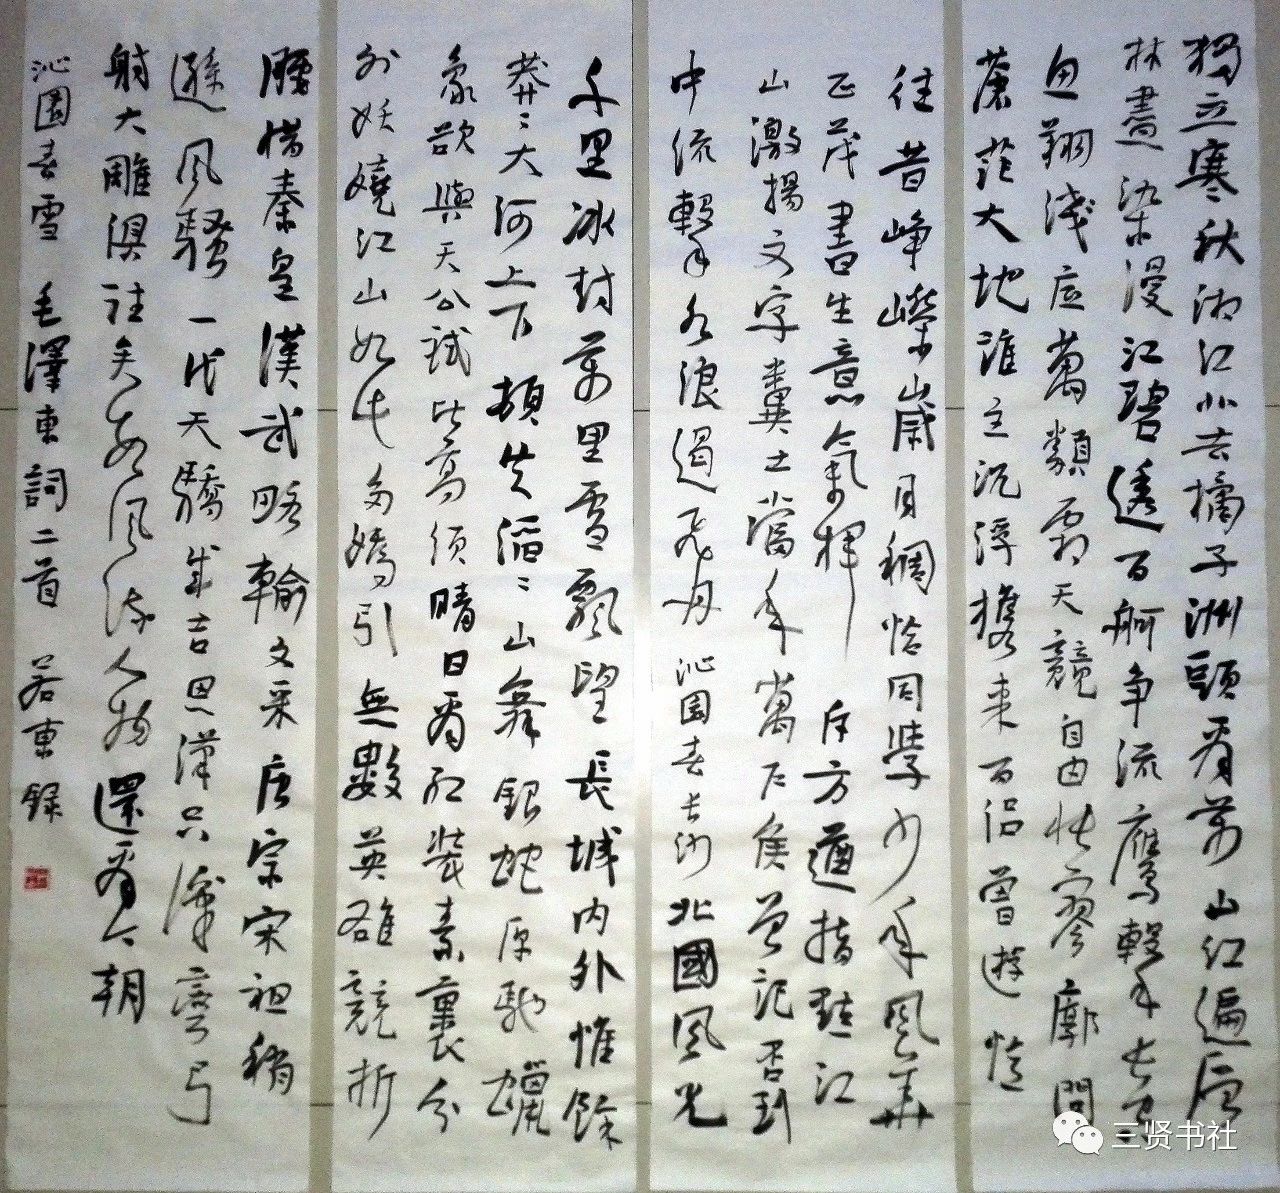 獨立寒秋湘江北去橘子洲頭看萬山紅遍層
林盡染漫江碧透百舸爭流鷹擊長空
魚翔淺底萬類霜天競自由悵寥廓問
蒼茫大地誰主沉浮攜來百侶曾遊憶
往昔崢嶸歲月稠恰同學少年風華
正茂書生意氣揮斥方遒指點江
山激揚文字糞土當年萬戶侯曾記否到
中流擊水浪遏飛舟 沁園春長沙 北國風光
千里冰封萬里雪飄望長城内外惟餘
莽〻大河上下頓失滔〻山舞銀蛇原馳蠟
象欲與天公試比高須晴日看紅裝素裹分
外妖嬈江山如此多嬌引無數英雄競折
腰惜秦皇漢武略輸文采唐宗宋祖稍
遜風騷一代天驕成吉思漢只識彎弓
射大雕俱往矣數風流人物還看今朝
沁園春雪 毛澤東詞二首 若東錄
三贤书社